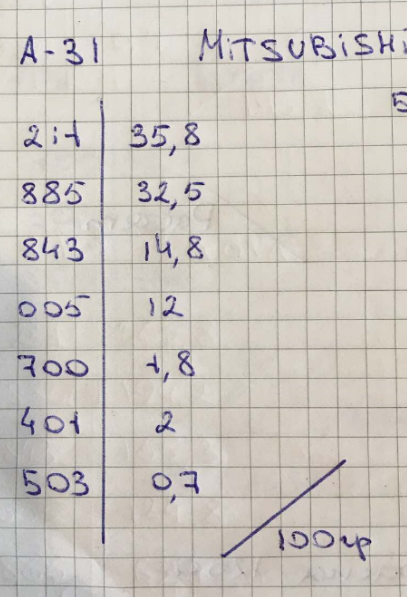 A-31 MiTSUBiSHi
5
2it 35,8
885 32,5
843 14,8
005 12
700 1,8
401 2
503 0,7
100гр